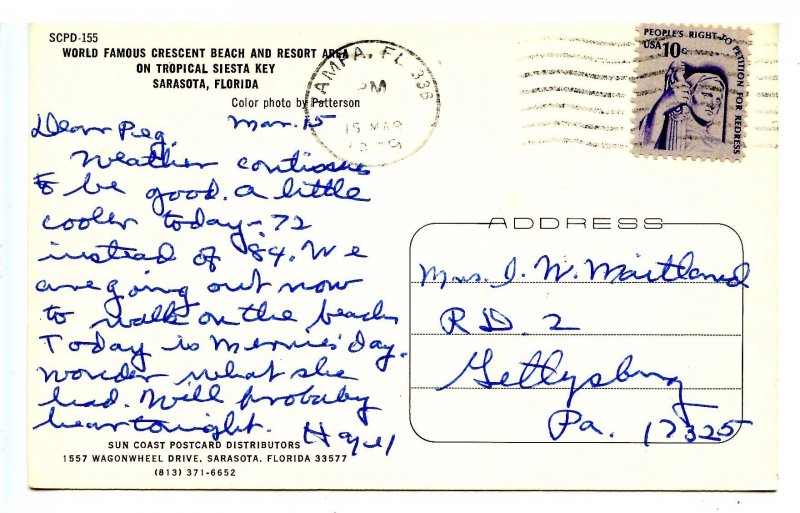 SCPD-155
WORLD FAMOUS CRESCENT BEACH AND RESORT AREA
ON TROPICAL SIESTA KEY
SARASOTA, FLORIDA
Color photo by Patterson
TAMPA, FL 336
PM
15 MAR
PEOPLE'S RIGHT TO PETITION FOR REDRESS
USA 10c
Dear Peg, Mar. 15
Weather continues
to be good. A little
cooler today - 72
instead of 84. We
are going out now
to walk on the beach.
Today is Day.
Wonder what she
had. Will probably
hear tonight. Hazel
ADDRESS
Mrs. I. W. Maitland
R.D. 2
Gettysburg
Pa. 17325
SUN COAST POSTCARD DISTRIBUTORS
1557 WAGONWHEEL DRIVE, SARASOTA, FLORIDA 33577
(813) 371-6652